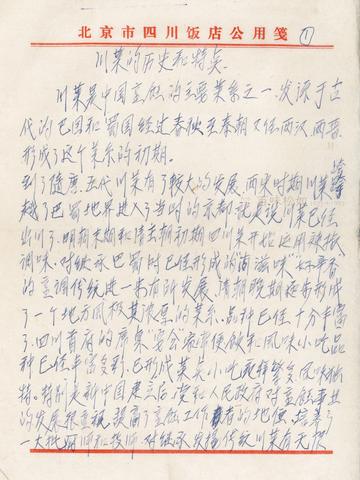 北京市四川饭店公用笺
①
川菜的历史和特点
川菜是中国烹饪的主要菜系之一,发源于古
代的巴国和蜀国经过春秋至秦朝又经两汉两晋
形成了这个菜系的初期。
到了隋唐五代川菜有了较大的发展,两宋时期川菜跨
越了巴蜀地界进入了当时的京都,就是说川菜已经
出川了。明朝末期和清朝初期四川菜开始运用辣椒
调味,对继承巴蜀时已经形成的"尚滋味""好辛香"
的烹调传统进一步有所发展,清朝晚期逐步形成
了一个地方风味极其浓厚的菜系,品种已经十分丰富
了。四川首府的席桌
便饭和风味小吃品
种已经丰富多彩,已形成菜美小吃
风味独
特。特别是新中国建立后,党和人民政府对烹饪事业
的发展很重视,提高了烹饪工作者的地位,培养了
一大批厨师和技师,对继承发扬传统川菜有无限